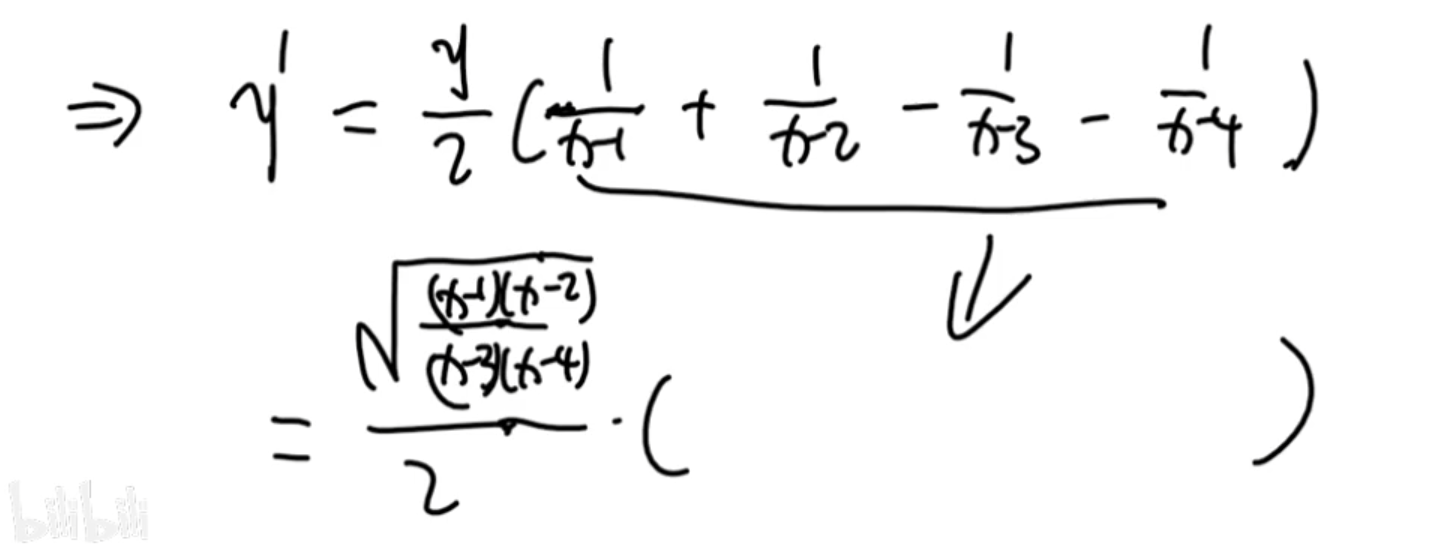 ⇒ y' = y/2 ( 1/(x-1) + 1/(x-2) - 1/(x-3) - 1/(x-4) )
= √((x-1)(x-2)/(x-3)(x-4))/2 · ( )
bilibili